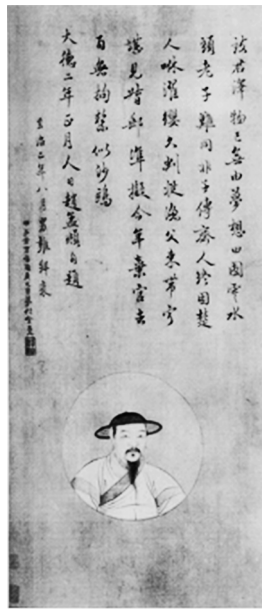 致君澤物已無由夢想田園雲水
頭老子難同非子傳齊人終困楚
人咻濯纓久判從漁父束帶寧
堪見督郵準擬今年棄官去
百無拘繫似沙鷗
大德二年正月人日趙孟頫自題
至治二年八月